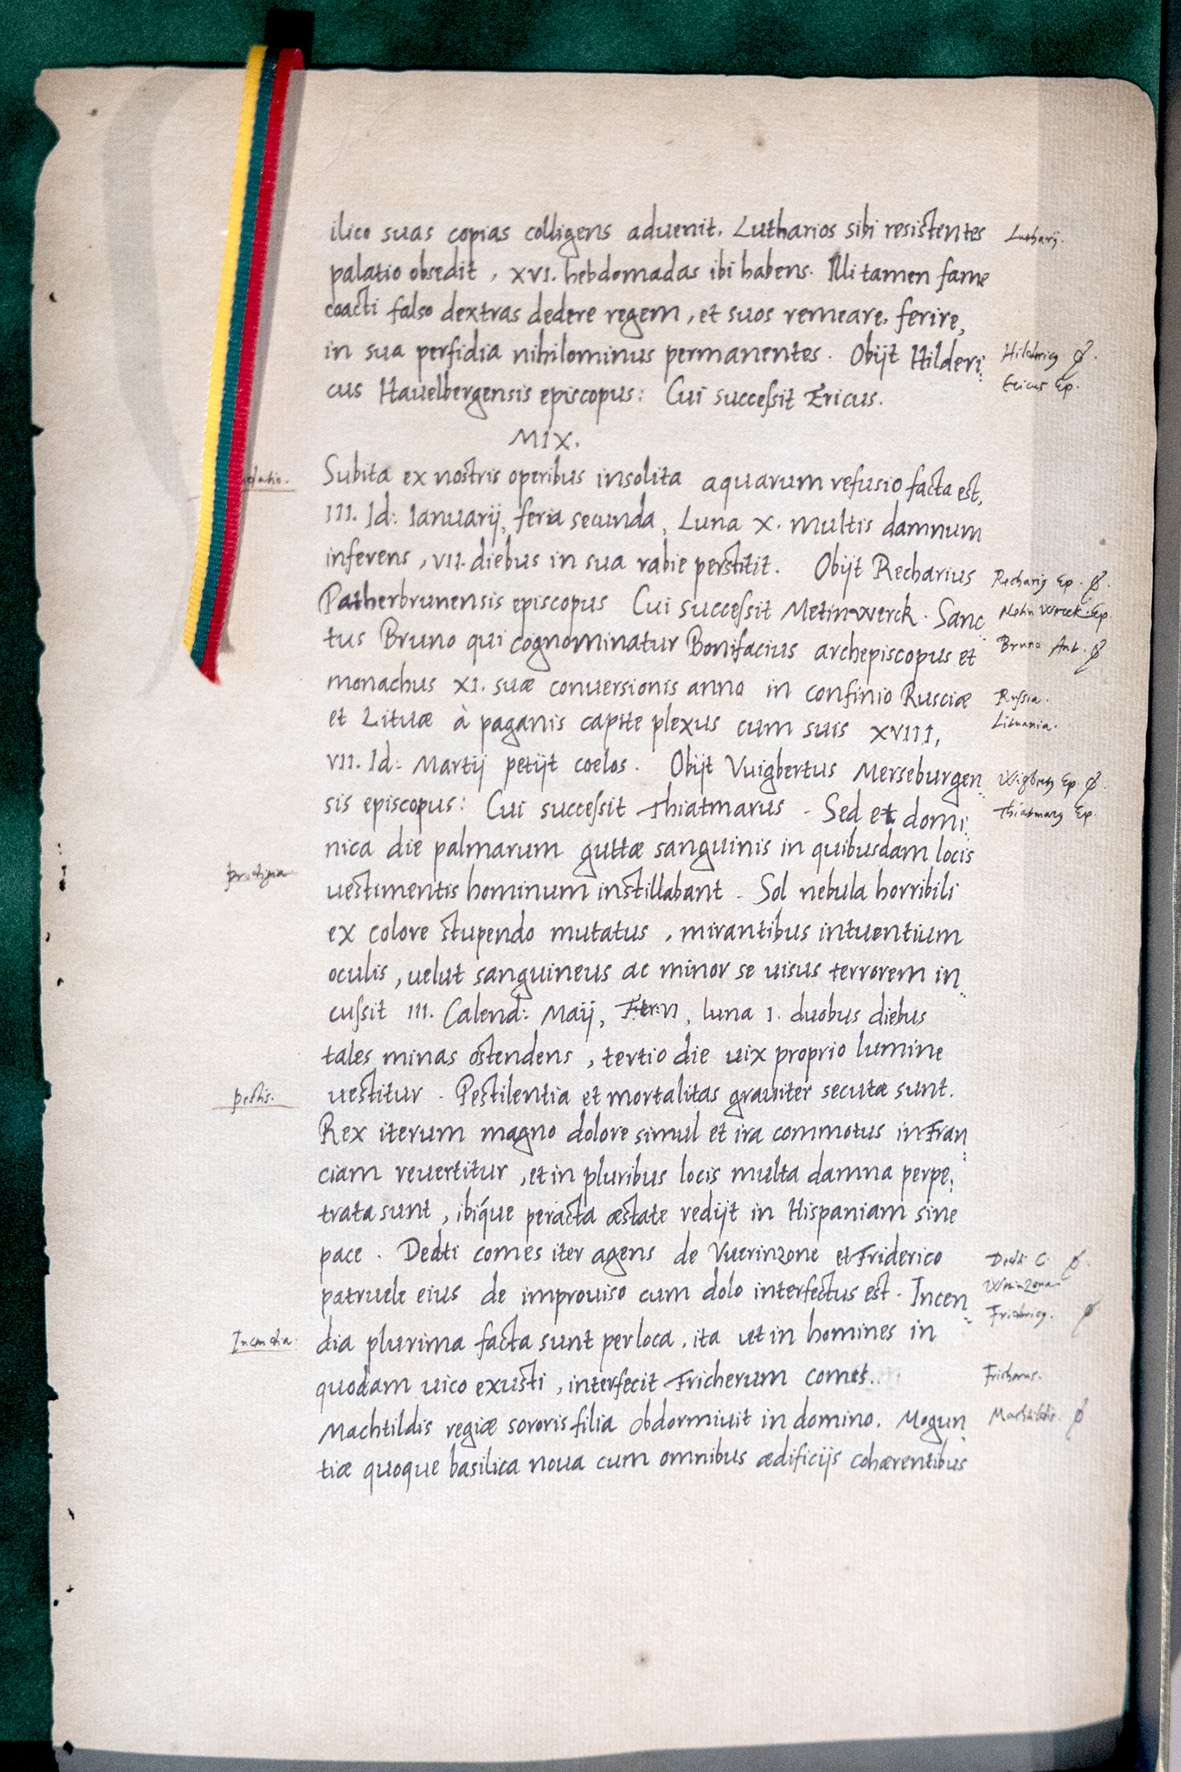 ilico suas copias colligens aduenit. Lutharios sibi resistentes
Lutharij.
palatio obsedit, XVI. hebdomadas ibi habens. Illi tamen fame
coacti falso dextras dedere regem, et suos remeare, ferire,
in sua perfidia nihilominus permanentes. Obijt Hilderi
cus Hauelbergensis episcopus: Cui succeſsit Ericus.
Ericus Ep.
MIX.
Subita ex nostris operibus insolita aquarum refusio facta est,
III. Id: Ianuarij, feria secunda, Luna X. multis damnum
inferens, VII. diebus in sua rabie perstitit. Obijt Recharius
Patherbrunensis episcopus Cui succeſsit Metinwerck. Sanc
tus Bruno qui cognominatur Bonifacius archepiscopus et
monachus XI. suæ conuersionis anno in confinio Rusciæ
Ruſsia.
et Lituæ à paganis capite plexus cum suis XVIII,
Lituania.
VII. Id: Martij petijt coelos. Obijt Vuigbertus Merseburgen
sis episcopus: Cui succeſsit Thiatmarus. Sed et domi
nica die palmarum guttæ sanguinis in quibusdam locis
prodigia
uestimentis hominum instillabant. Sol nebula horribili
ex colore stupendo mutatus, mirantibus intuentium
oculis, uelut sanguineus ac minor se uisus terrorem in
cuſsit III. Calend: Maij, luna I. duobus diebus
tales minas ostendens, tertio die uix proprio lumine
pestis.
uestitur. Pestilentia et mortalitas grauiter secutæ sunt.
Rex iterum magno dolore simul et ira commotus in Fran
ciam reuertitur, et in pluribus locis multa damna perpe
trata sunt, ibíque peracta æstate redijt in Hispaniam sine
pace. Dedti comes iter agens de Vuerinzone et Friderico
Dedti C. ø.
patruele eius de improuiso cum dolo interfectus est. Incen
Incendia.
dia plurima facta sunt per loca, ita ut in homines in
quodam uico exusti, interfecit Fricherum comet.
Fricherus.
Machtildis regiæ sororis filia obdormiuit in domino. Mogun
Machtildis. ø
tiæ quoque basilica noua cum omnibus ædificijs cohærentibus